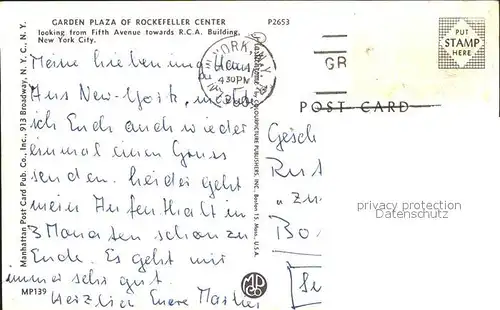 GARDEN PLAZA OF ROCKEFELLER CENTER
looking from Fifth Avenue towards R.C.A. Building,
New York City.
P2653
PUT
STAMP
HERE
YORK, N.Y.
430 PM
GR
POST CARD
Manhattan Post Card Pub. Co., Inc., 913 Broadway, N. Y. C., N. Y.
MP139
COLOURPICTURE PUBLISHERS, INC., Boston 15, Mass., U.S.A.
MPC
CO
Meine Lieben im Haus,
Aus New-York, möchte
ich Euch auch wieder
einmal einen Gruss
senden. Leider geht
mein Aufenthalt in
3 Monaten schon zu
Ende. Es geht mir
immer sehr gut.
Herzlich Eure
Gesch
"zu
privacy protection
Datenschutz